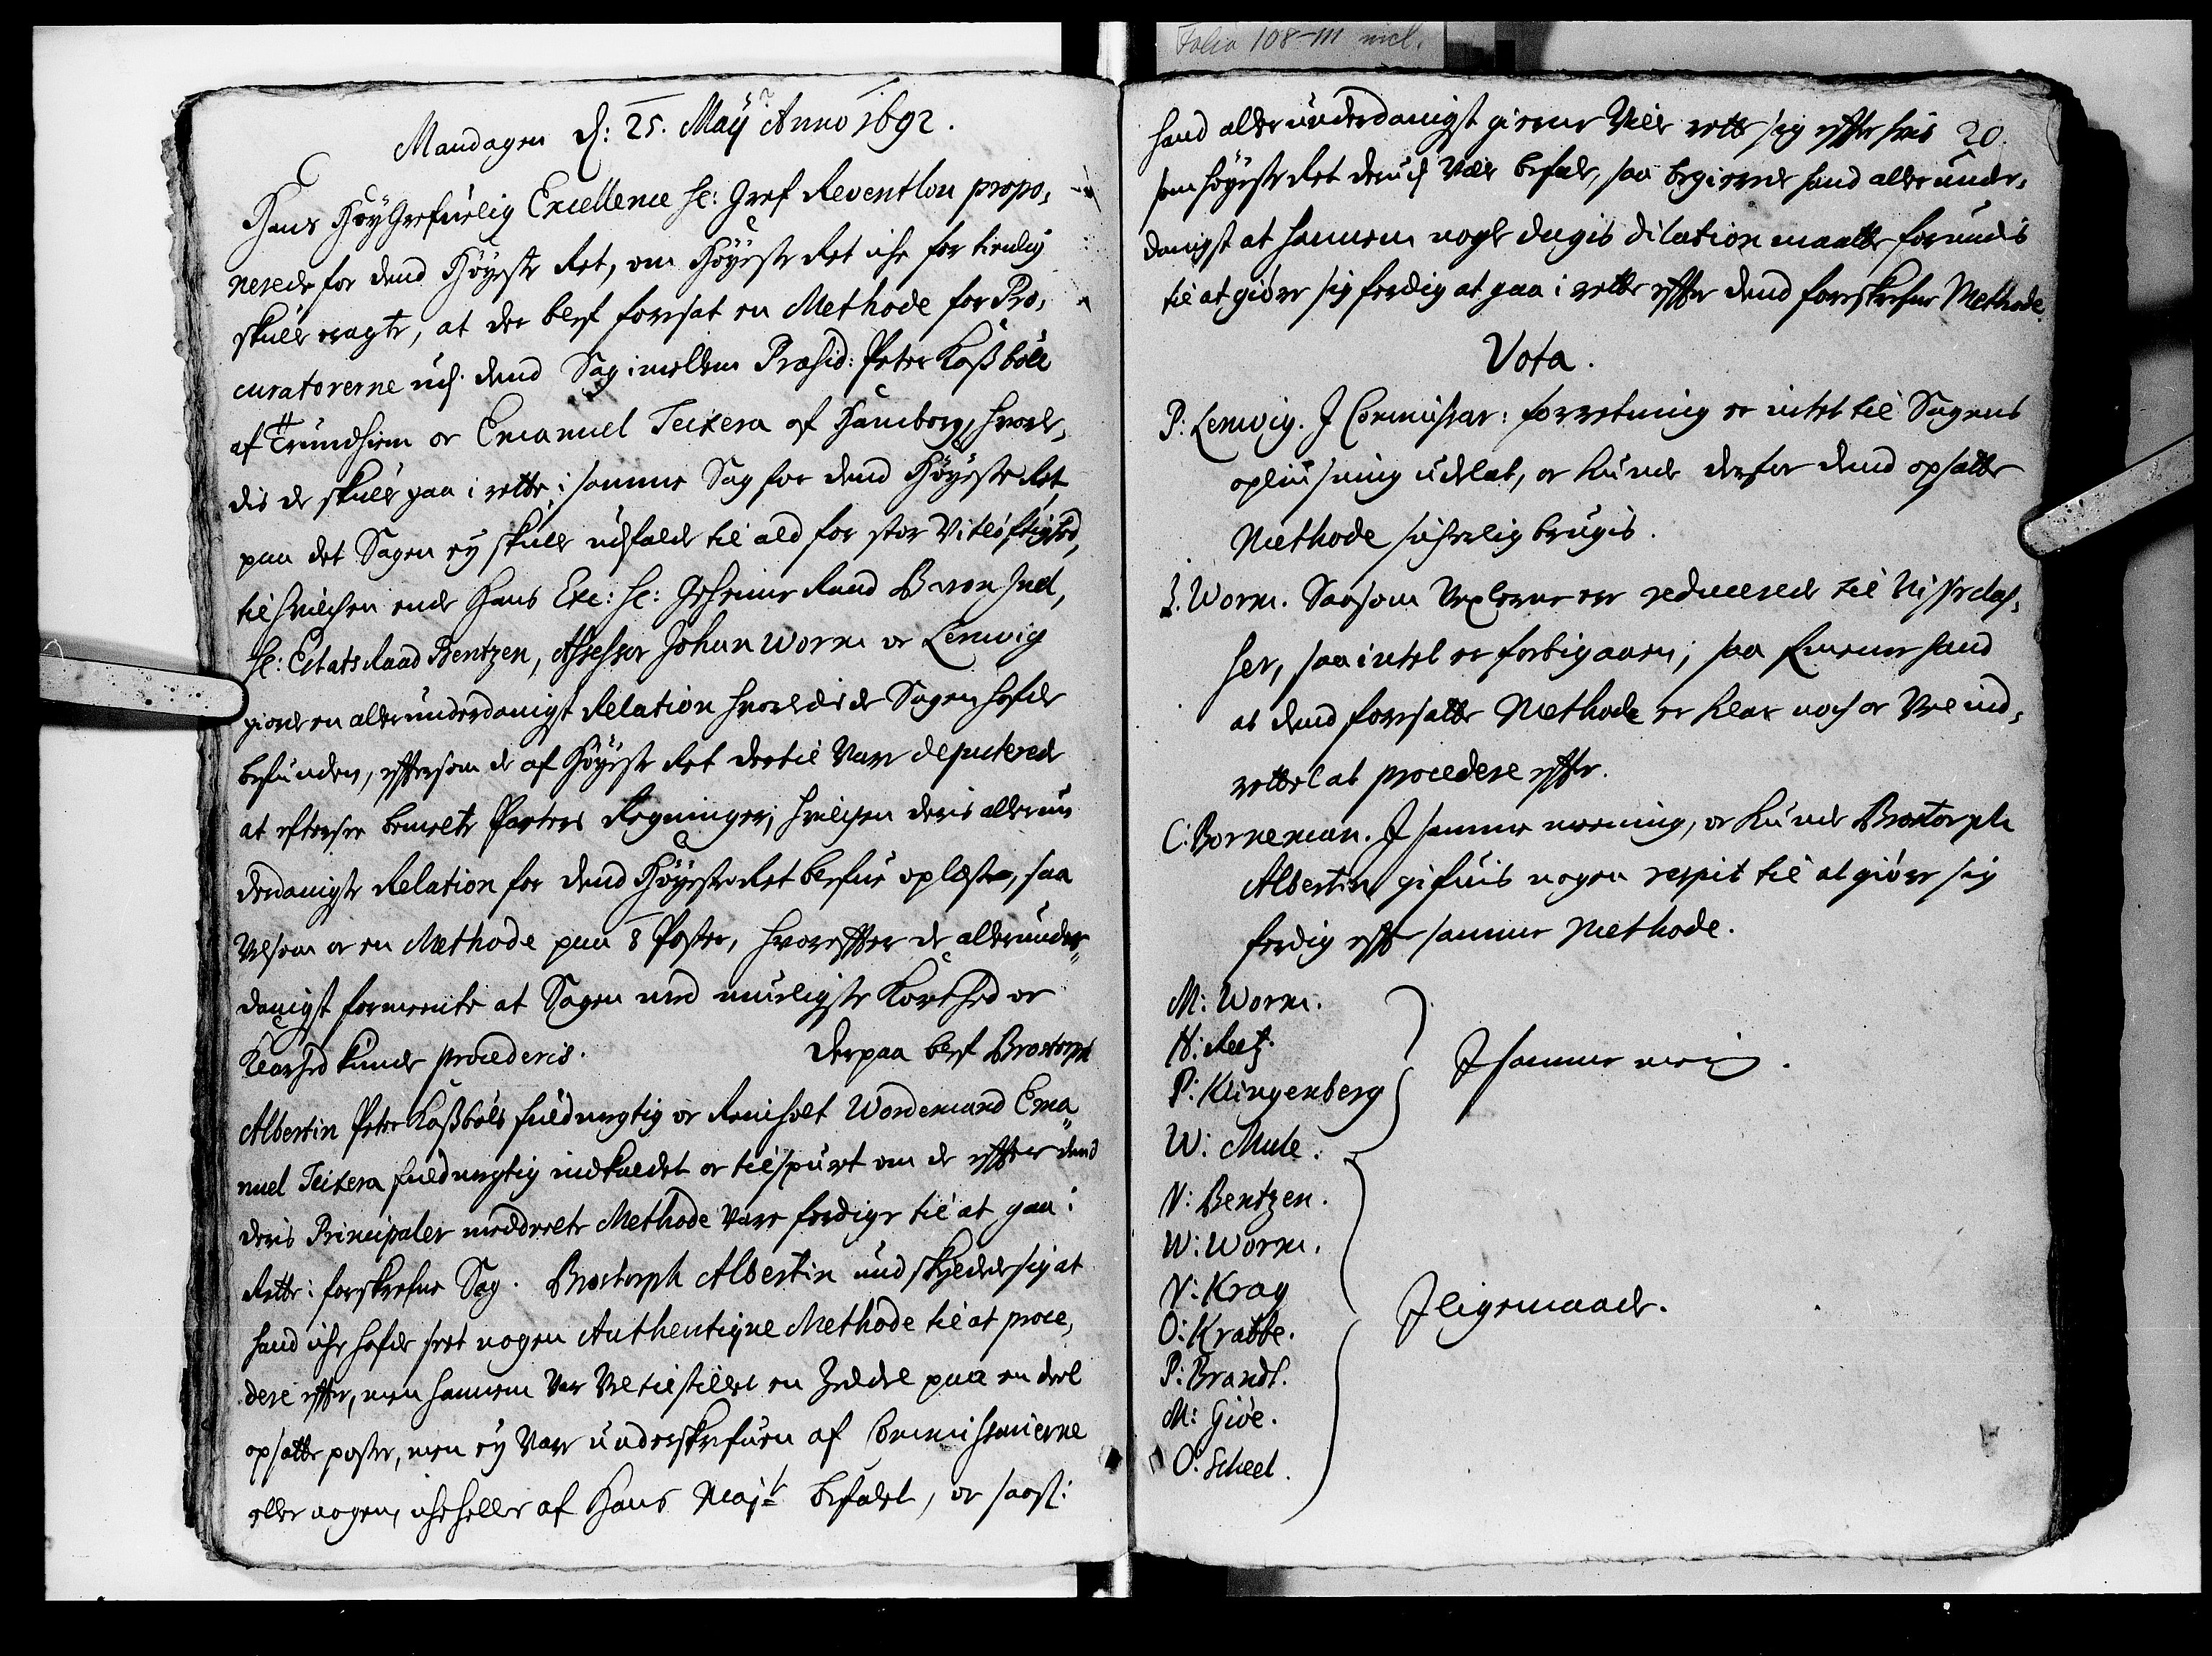 Folio 108-111 incl.
Mandagen d: 25. Maÿ Anno 1692.
Hans HøyGrefuelig Excellence Hr: Gref Reventlou propo-
nerede for dend Høyeste Ret, om Høyeste Ret iche for tienlig
skulle eragte, at der blef forfat en Methode for Pro-
curatorerne udj dend Sag imellem Præsid: Peter Kaßbøll
af Trundhiem oc Emanuel Teixera af Hamborg, hvorle-
dis de skulle gaa i rette i samme Sag for dend Høyeste Ret
paa det Sagen ey skulle udfalde til ald for stor Vitløftighed,
til huilchen ende Hans Exc: Hr: Geheime Raad Baron Juel,
Hr: Etats Raad Bentzen, Assessor Johan Worm oc Lemvig
giorde en allerunderdanigst Relation hvorledis de Sagen hafde
befunden, efftersom de af Høyeste Ret dertil Vare deputerede
at eftersee bemelte Parters Regninger; huilchen deris allerun
derdanigste Relation for dend Høyeste Ret blefue oplæste, saa
Velsom oc en Methode paa 8 Poster, hvoreffter de allerunder-
danigst formeente at Sagen med muligste Korthed oc
Klarhed kunde procederis. Derpaa blef Brostorph
Albertin Peter Kaßbølls fuldmegtig oc Reinholt Wordemand Ema
nuel Teixera fuldmegtig indkaldet oc tilspurt om de effter dend
deris Principaler meddeelte Methode Vare ferdige til at gaa i
Rette i forskrefne Sag. Brostorph Albertin undskyldede sig at
hand iche hafde seet nogen Authentique Methode til at proce-
dere effter, men hannem Var Vel tilstillet en Zeddel paa en deel
opsatte poster, men ey Vare underskrefuen af Commissarierne
eller nogen, iche heller af Hans Majt befalet, oc saasom
hand allerunderdanigst gierne Ville rette sig effter huis 20.
som Høyeste Ret derudj Ville befale, saa begierede hand allerunder-
danigst at hannem nogle dagis dilation maatte forundis
til at giøre sig ferdig at gaa i rette effter dend forskrefne Methode.
Vota.
P: Lemvig. J Commissar: forretning er intet til Sagens
opliusning udelat, oc kunde derfor dend opsatte
Methode sicherlig brugis.
J. Worm. Saasom Posterne ere reducerede til Visse clas-
ser, saa intet er forbigaaen; saa formener hand
at dend forfatte Methode er klar noch oc Vel ind-
rettet at procedere effter.
C: Borneman. J samme meening, oc kunde Brostorph
Albertin gifuis nogen respit til at giøre sig
ferdig effter samme Methode.
M: Worm.
H: Reetz.
P: Klingenberg
J samme mening.
W: Mule.
N: Bentzen.
W: Worm.
N: Krag
Jligemaade.
O: Krabbe.
P: Brandt.
M: Giøe.
O: Scheel.